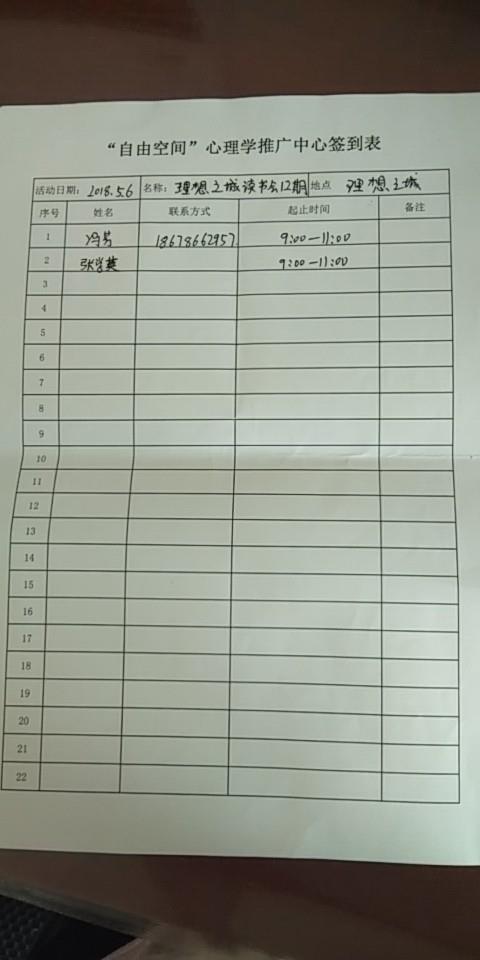 “自由空间”心理学推广中心签到表
活动日期：2018.5.6 名称：理想之城读书会12期 地点 理想之城
序号 姓名 联系方式 起止时间 备注
1 冯芳 18678662957 9:00—11:00
2 张学英 9:00—11:00
3
4
5
6
7
8
9
10
11
12
13
14
15
16
17
18
19
20
21
22